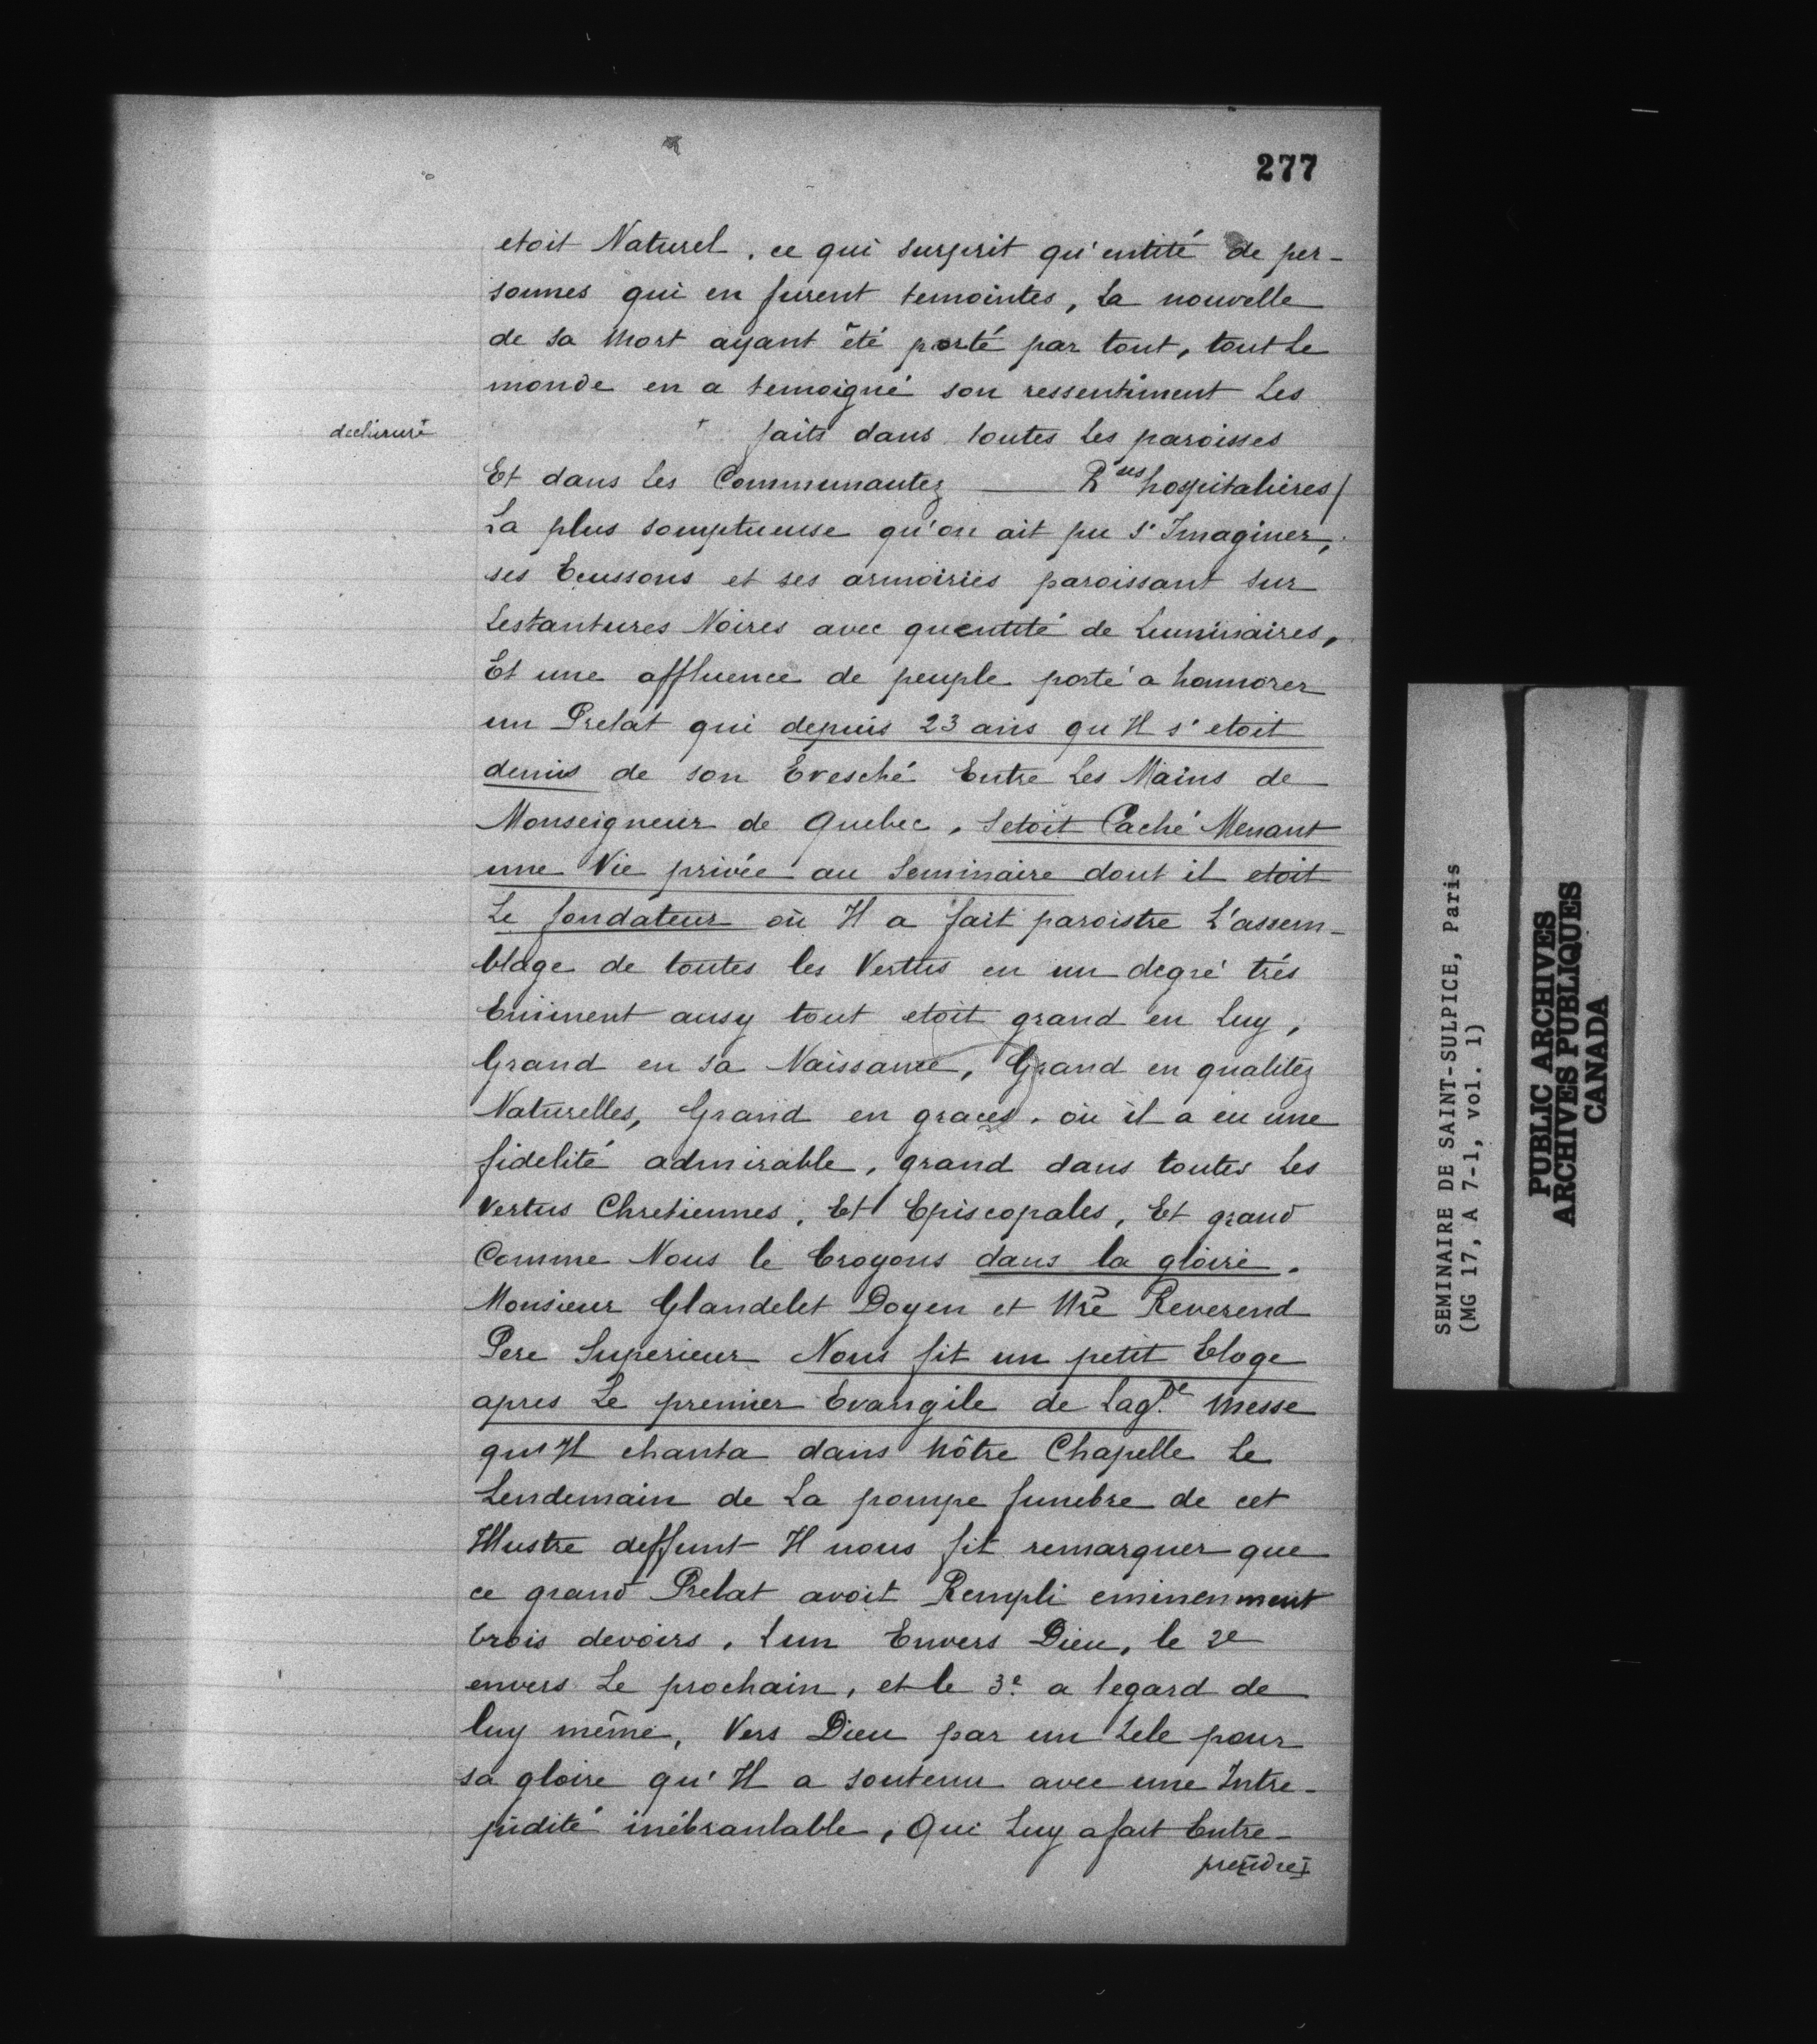 277
etoit Naturel, ce qui surprit qu'entité de per-
sonnes qui en furent temointes, La nouvelle
de sa Mort ayant été porté par tout, tout Le
monde en a temoigné son ressentiment Les
dechirure faits dans toutes Les paroisses
Et dans Les Communautez — R ses hospitalieres/
La plus somptueuse qu'on ait pu s'Imaginer,
ses Ecussons et ses armoiries paroissant sur
Lestantures Noires avec quentité de Luminaires,
Et une affluence de peuple porté a honnorer
un Prelat qui depuis 23 ans qu Il s'etoit
demis de son Evesché Entre Les Mains de
Monseigneur de Quebec, Setoit Caché Menant
une Vie privée au Seminaire dont il etoit
Le fondateur où Il a fait paroistre L'assem-
blage de toutes les Vertus en un degré trés
Eminent ausy tout etoit grand en Luy,
Grand en sa Naissance, Grand en qualitez
Naturelles, Grand en graces, où il a eu une
fidelité admirable, grand dans toutes Les
Vertus Chretiennes, Et Episcopales, Et grand
Comme Nous le Croyons dans la gloire.
Monsieur Glandelet Doyen et Nrẽ Reverend
Pere Superieur Nous fit un petit Eloge
apres Le premier Evangile de Lagde Messe
qu'Il chanta dans Nôtre Chapelle Le
Lendemain de La pompe funebre de cet
Illustre deffunt Il nous fit remarquer que
ce grand Prelat avoit Rempli eminenment
trois devoirs, Lun Envers Dieu, le 2e
envers Le prochain, et le 3e a legard de
luy même, Vers Dieu par un Zele pour
sa gloire qu'Il a soutenu avec une Intre-
pidité inébranlable, Qui Luy a fait Entre-
prendre
SEMINAIRE DE SAINT-SULPICE, Paris
(MG 17, A 7-1, vol. 1)
PUBLIC ARCHIVES
ARCHIVES PUBLIQUES
CANADA